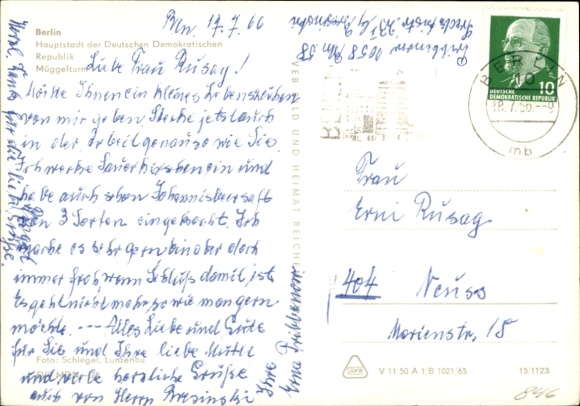 Berlin
Hauptstadt der Deutschen Demokratischen
Republik
Müggelturm
Bln. 17.7.66
Liebe Frau Rusag!
Möchte Ihnen ein kleines Lebenszeichen
von mir geben. Stecke jetzt auch
in der Arbeit genauso wie Sie.
Ich wecke Sauerkirschen ein und
habe auch schon Johannisbeersaft
von 3 Sorten eingekocht. Ich
mache es sehr gern bin aber doch
immer froh, wenn Schluß damit ist.
Es geht nicht mehr so wie man gern
möchte. --- Alles Liebe und Gute
für Sie und Ihre liebe Mutter
und viele herzliche Grüße
auch von Herrn Bresinski
Ihre
Herzl. Dank für die Grüße.
1058 Bln 58
VEB BILD UND HEIMAT REICHENBACH
Foto: Schlegel, Lunzenau
BERLIN
18.7.66
mb
10
DEUTSCHE
DEMOKRATISCHE REPUBLIK
Frau
Erni Rusag
404 Neuss
Marienstr. 18
V 11 50 A 1/B 1021/65
15 1123
846